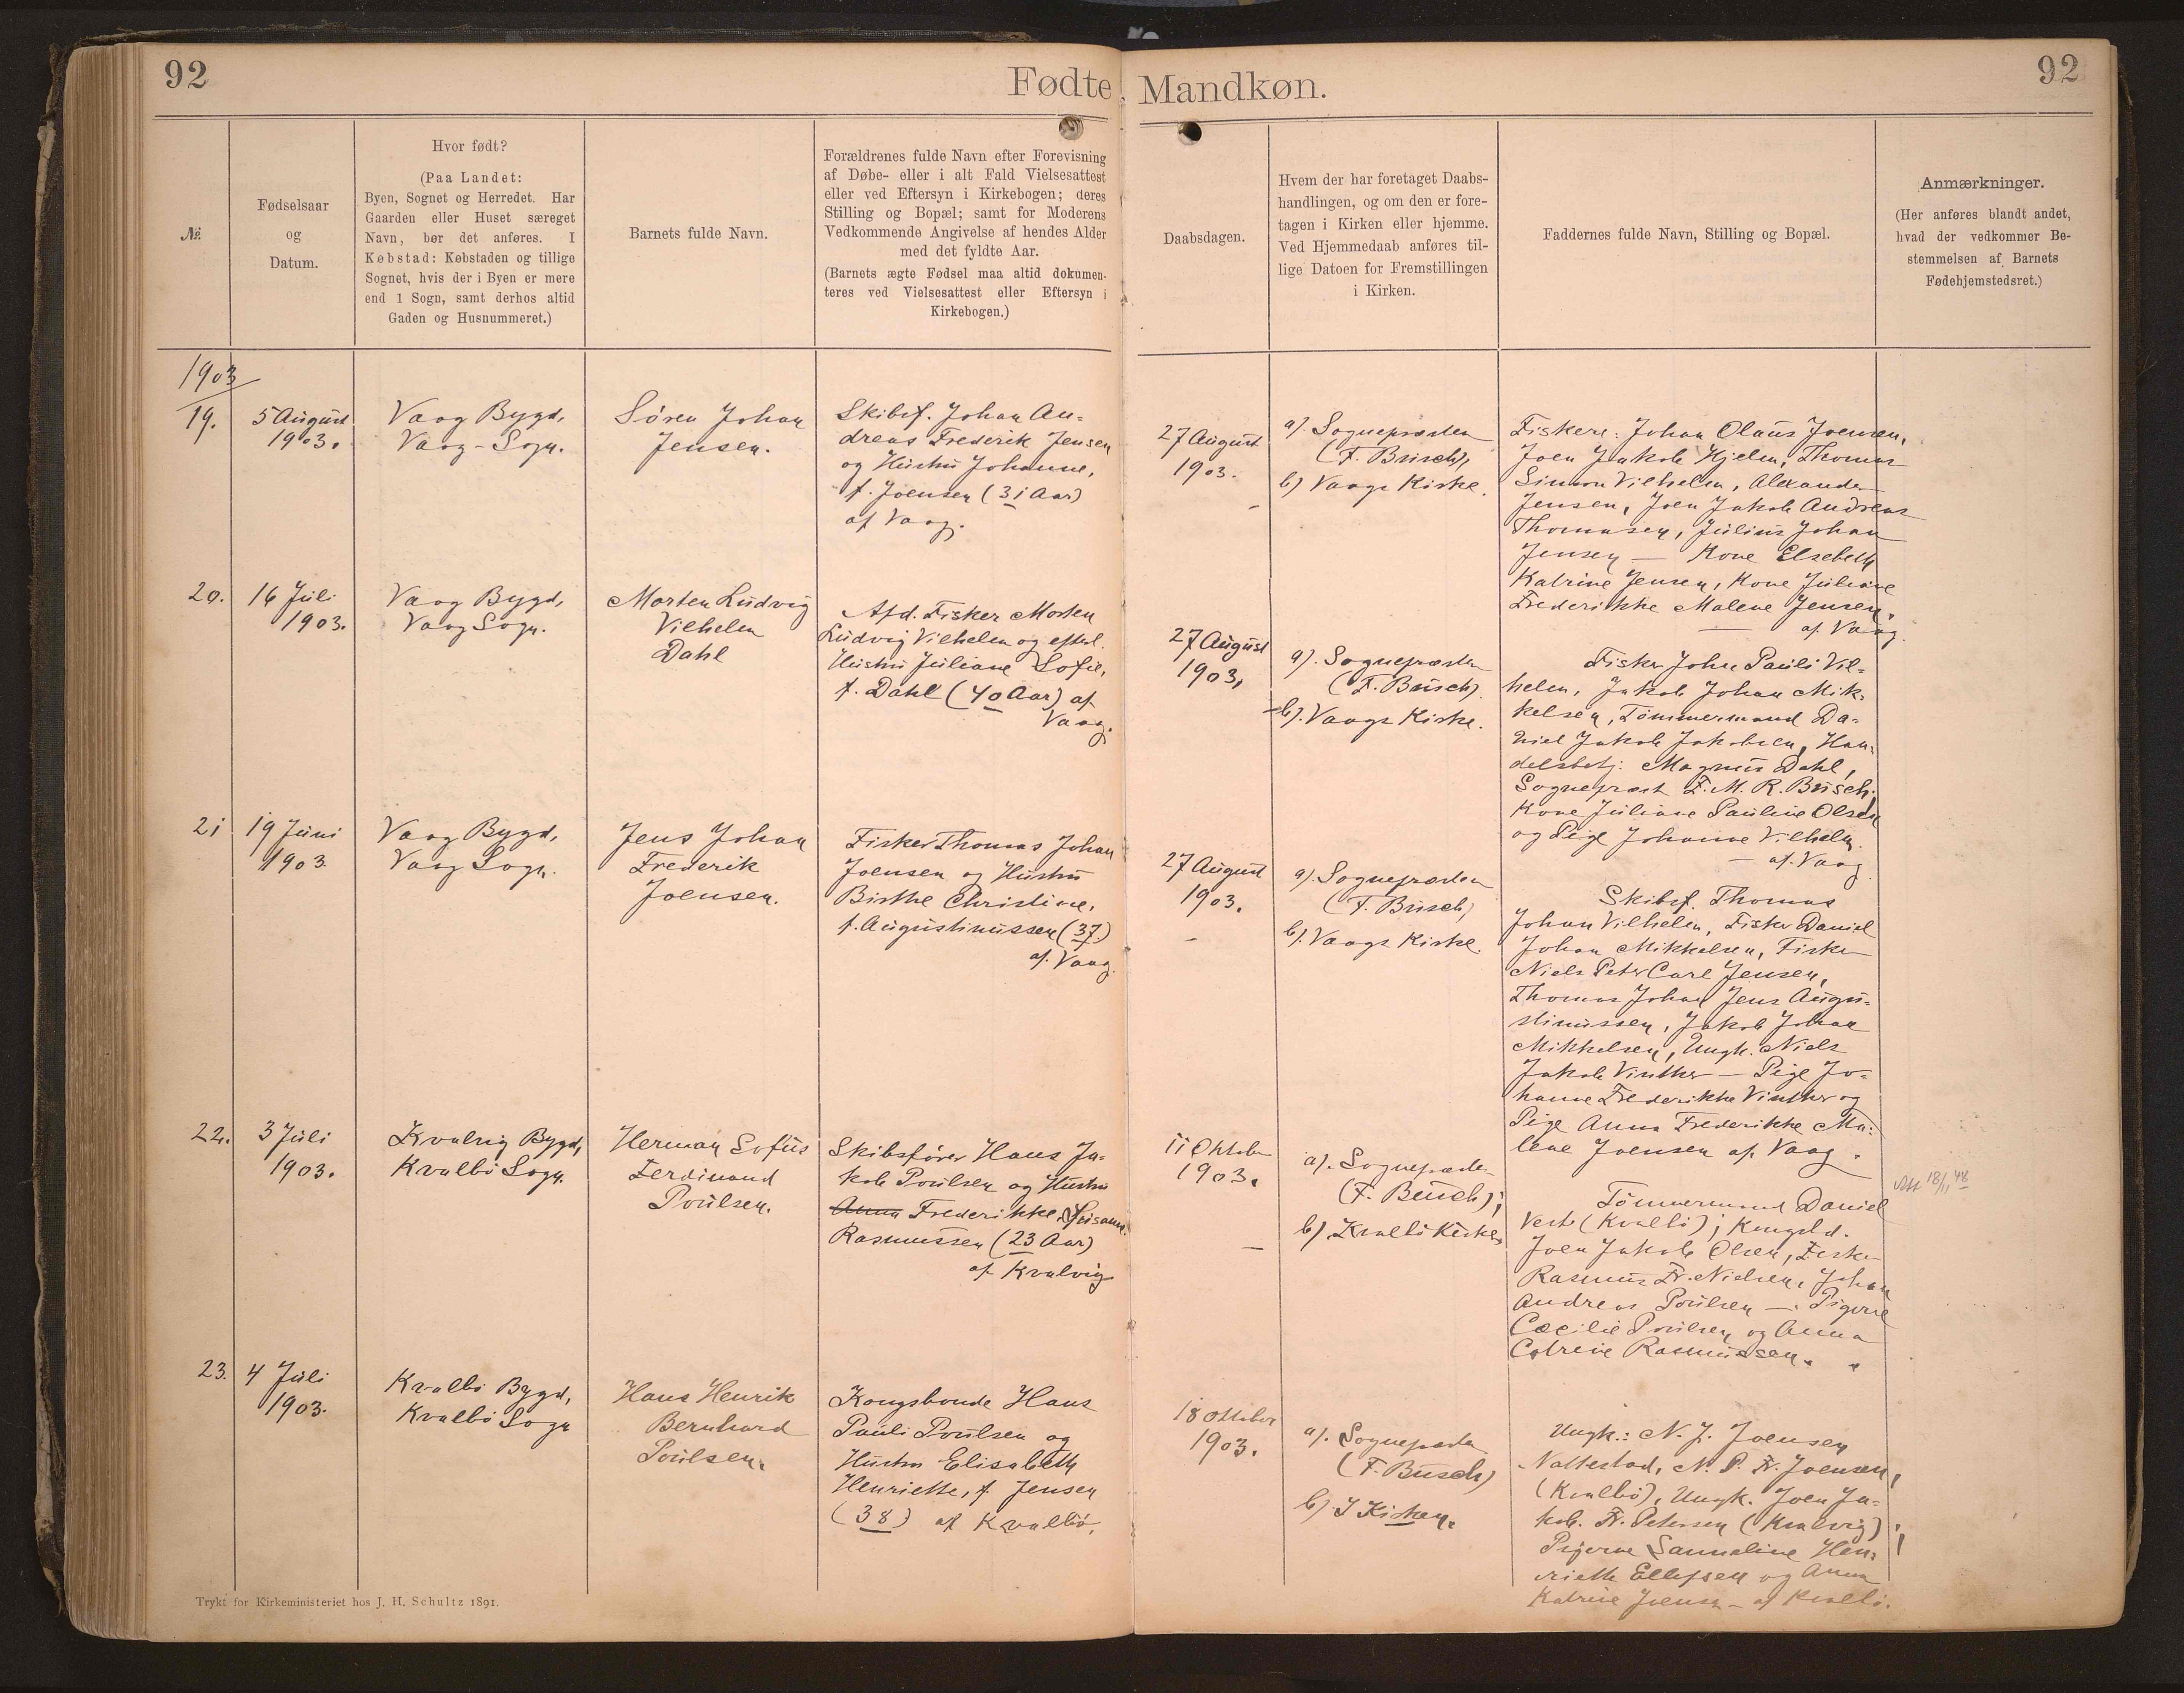 92
Fødte, Mandkøn.
92
№.
Fødselsaar
og
Datum.
Hvor født?
(Paa Landet:
Byen, Sognet og Herredet. Har
Gaarden eller Huset særeget
Navn, bør det anføres. I
Købstad: Købstaden og tillige
Sognet, hvis der i Byen er mere
end 1 Sogn, samt derhos altid
Gaden og Husnummeret.)
Barnets fulde Navn.
Forældrenes fulde Navn efter Forevisning
af Døbe- eller i alt Fald Vielsesattest
eller ved Eftersyn i Kirkebogen; deres
Stilling og Bopæl; samt for Moderens
Vedkommende Angivelse af hendes Alder
med det fyldte Aar.
(Barnets ægte Fødsel maa altid dokumen-
teres ved Vielsesattest eller Eftersyn i
Kirkebogen.)
Daabsdagen.
Hvem der har foretaget Daabs-
handlingen, og om den er fore-
tagen i Kirken eller hjemme.
Ved Hjemmedaab anføres til-
lige Datoen for Fremstillingen
i Kirken.
Faddernes fulde Navn, Stilling og Bopæl.
Anmærkninger.
(Her anføres blandt andet,
hvad der vedkommer Be-
stemmelsen af Barnets
Fødehjemstedsret.)
1903
19.
5 August
1903.
Vaag Bygd,
Vaag-Sogn.
Søren Johan
Jensen.
Skibsf. Johan An-
dreas Frederik Jensen
og Hustru Johanne,
f. Joensen (31 Aar)
af Vaag.
27 August
1903.
a). Sognepræsten
(F. Busch),
b) Vaags Kirke.
Fiskere: Johan Olaus Joensen,
Joen Jakob Hjelm, Thomas
Simon Vilhelm, Alexander
Jensen, Joen Jakob Andreas
Thomasen, Julius Johan
Jensen — Kone Elsebeth
Katrine Jensen, Kone Juliane
Frederikke Malene Jensen,
— af Vaag.
20.
16 Juli
1903.
Vaag Bygd,
Vaag Sogn.
Morten Ludvig
Vilhelm
Dahl
Afd. Fisker Morten
Ludvig Vilhelm og efterl.
Hustru Juliane Sofie,
f. Dahl (40 Aar) af
Vaag.
27 August
1903,
a). Sognepræsten
(F. Busch).
b). Vaags Kirke.
Fisker John Pauli Vil-
helm, Jakob Johan Mik-
kelsen, Tømmermand Da-
niel Jakob Jakobsen, Han-
delsbetj. Magnus Dahl,
Sognepræst F. M. R. Busch,
Kone Juliane Pauline Olsen
og Pige Johanne Vilhelm.
— af Vaag.
21
19 Juni
1903
Vaag Bygd,
Vaag Sogn.
Jens Johan
Frederik
Joensen.
Fisker Thomas Johan
Joensen og Hustru
Birthe Christine,
f. Augustinussen (37)
af Vaag.
27 August
1903.
a). Sognepræsten
(F. Busch)
b). Vaags Kirke.
Skibsf. Thomas
Johan Vilhelm, Fisker Daniel
Johan Mikkelsen, Fisker
Niels Peter Carl Jensen,
Thomas Johan Jens Augu-
stinussen, Jakob Johan
Mikkelsen, Ungk. Niels
Jakob Vinther — Pige Jo-
hanne Frederikke Vinther og
Pige Anna Frederikke Ma-
lene Joensen af Vaag.
22.
3 Juli
1903.
Kvalvig Bygd,
Kvalbø Sogn.
Herman Sofus
Ferdinand
Poulsen.
Skibsfører Hans Ja-
kob Poulsen og Hustru
Anna Frederikke Susanne
Rasmussen (23 Aar)
af Kvalvig
11 Oktober
1903.
a). Sognepræsten
(F. Busch);
b). Kvalbø Kirke,
Tømmermand Daniel
Vest (Kvalbø);
Joen Jakob Olsen, Fisker
Rasmus Fr. Nielsen, Johan
Andreas Poulsen — Pigerne
Cæcilie Poulsen og Anna
Catrine Rasmussen.
18/11 48
23.
4 Juli
1903.
Kvalbø Bygd,
Kvalbø Sogn
Hans Henrik
Bernhard
Poulsen.
Kongsbonde Hans
Pauli Poulsen og
Hustru Elisabeth
Henriette, f. Jensen
(38) af Kvalbø.
18 Oktober
1903.
a). Sognepræsten
(F. Busch)
b). I Kirken.
Ungk.: N. J. Joensen
Naltestad, N. P. Fr. Joensen,
(Kvalbø), Ungk. Joen Ja-
kob. Fr. Petersen (Kvalvig);
Pigerne Sanneline Hen-
riette Ellefsen og Anna
Katrine Jensen — af Kvalbø.
Trykt for Kirkeministeriet hos J. H. Schultz 1891.